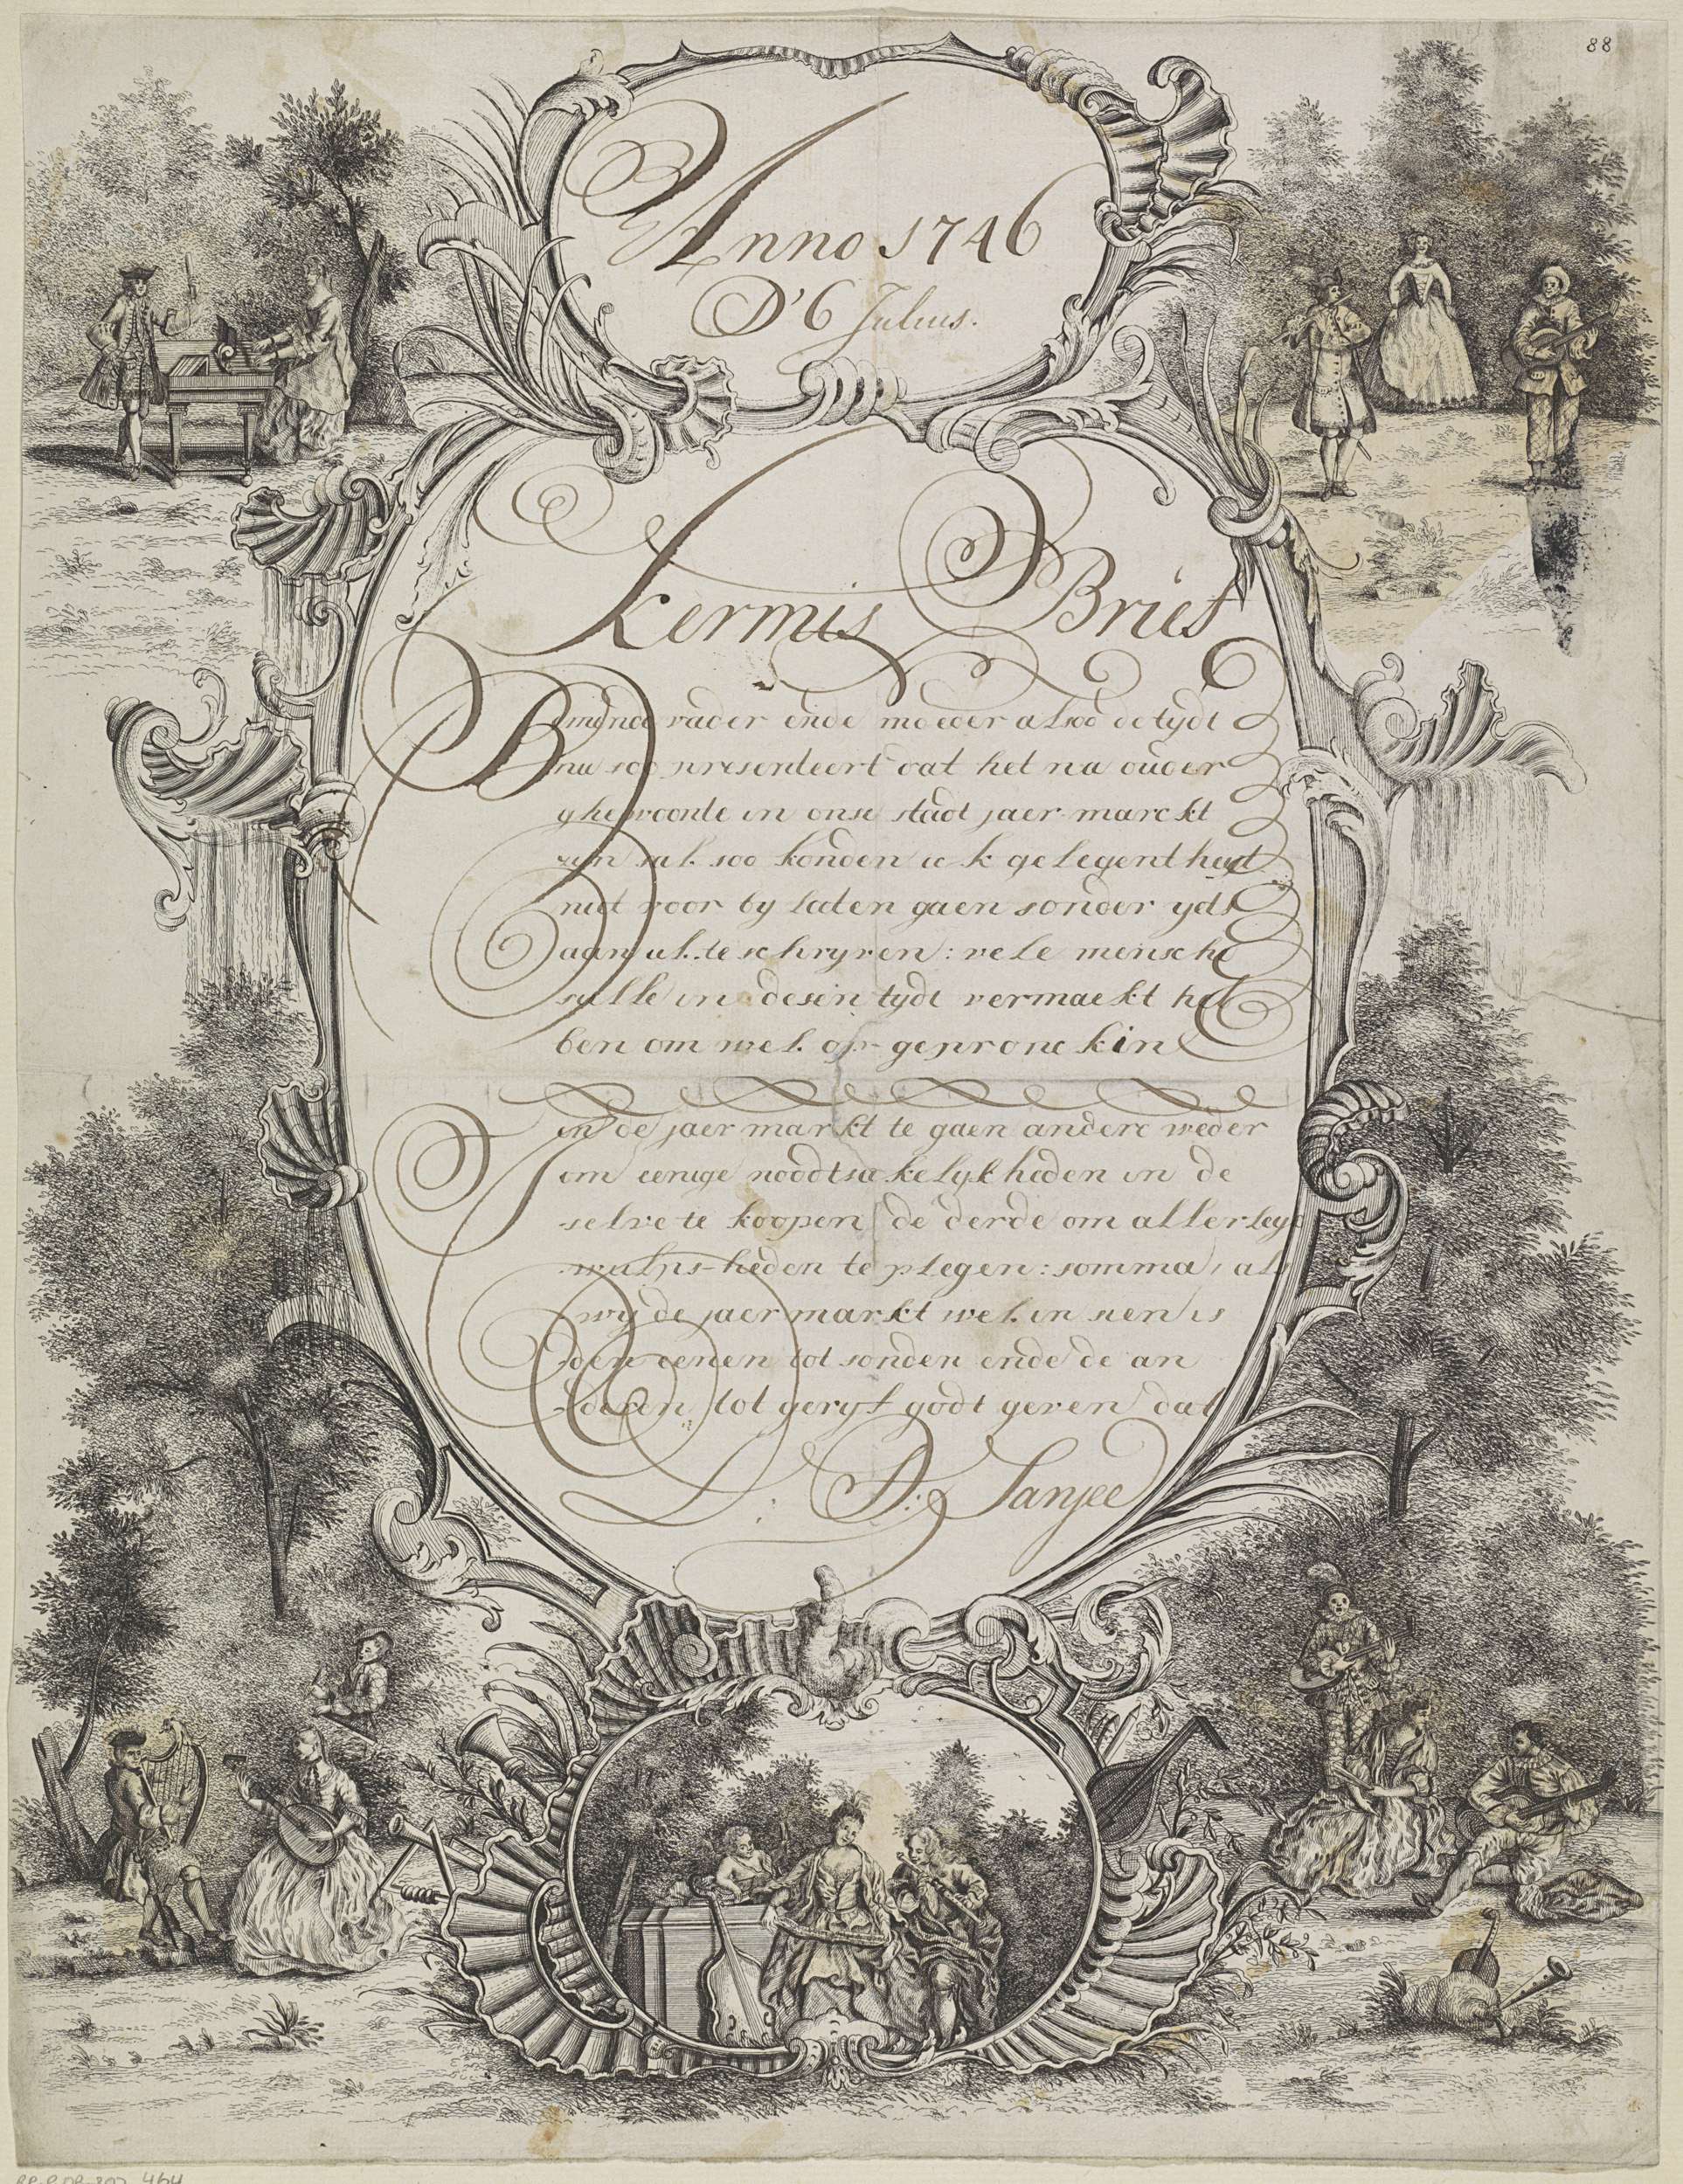 88
Anno 1746
D' 6 Julius.
Kermis Brief
Bminde vader ende moeder alsoo de tydt
nu soo presenteert dat het na ouder
ghewoonte in onse stadt jaer marckt
zyn sal soo konden ick gelegentheyt
niet voor by laten gaen sonder yets
aan ul. te schryven: vele mensche
sulle in desen tydt vermaekt heb
ben om wel op-gepronckin
in de jaer markt te gaen andere weder
om eenige noodtsakelykheden in de
selve te koopen de derde om allerley
wulps-heden te plegen: somma, als
wy de jaer markt wel in sien is
den eenen tot sonden ende de an
deren tot geryf godt geven dat
L: D: Sanjee
RP-P-OB-202.464